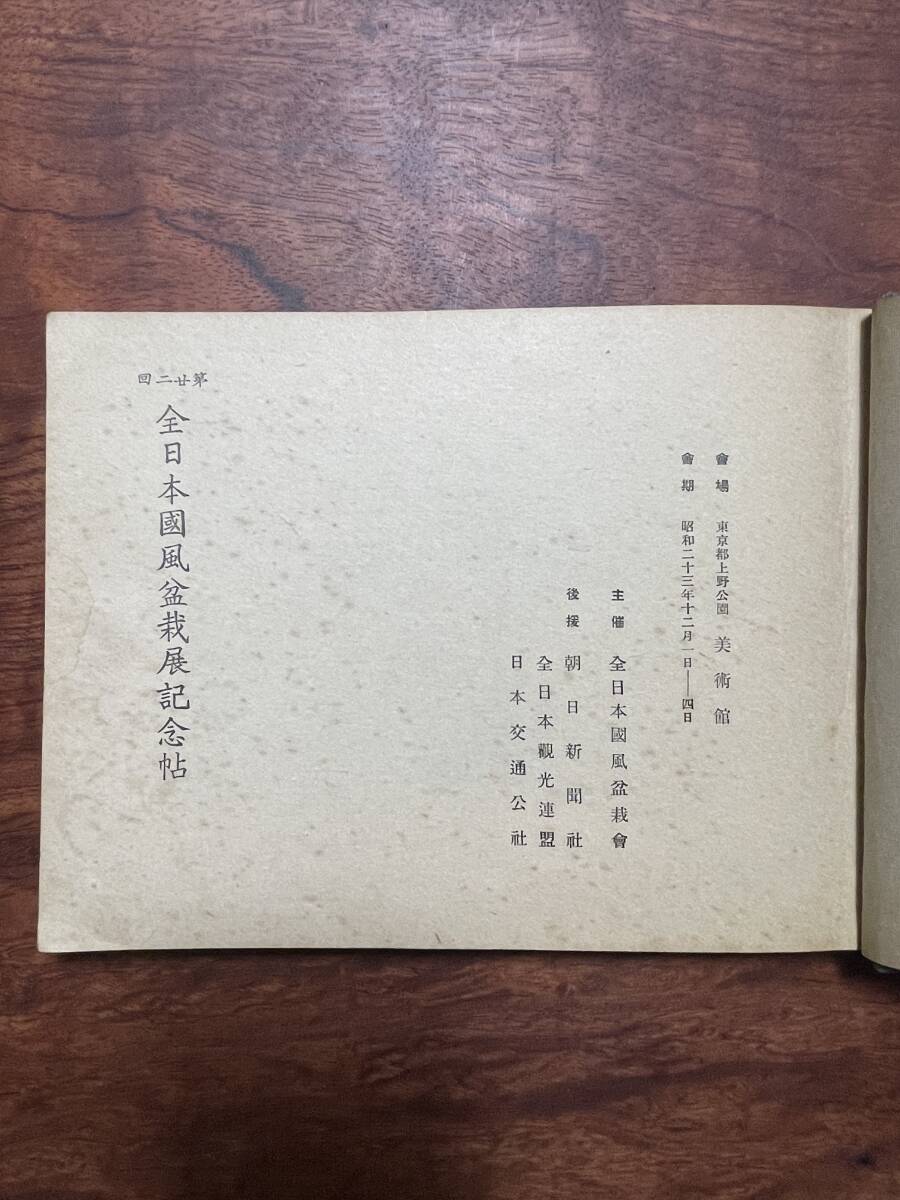 會場 東京都上野公園 美術館
會期 昭和二十三年十二月一日――四日
主催 全日本國風盆栽會
後援 朝日新聞社
全日本觀光連盟
日本交通公社
第廿二回
全日本國風盆栽展記念帖